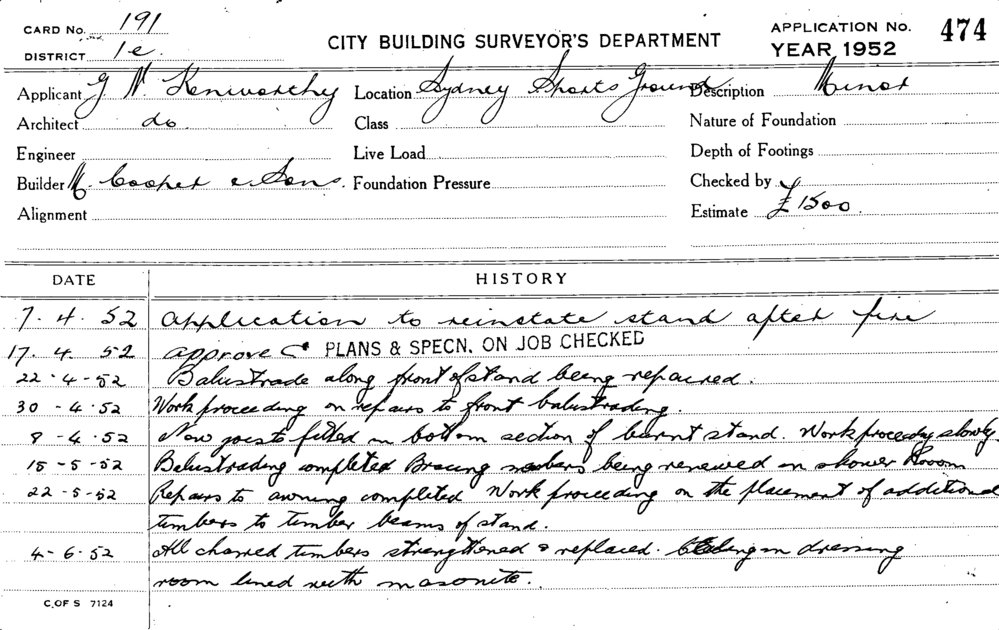 CARD No. 191
DISTRICT 1e.
CITY BUILDING SURVEYOR'S DEPARTMENT
APPLICATION No. 474
YEAR 1952
Applicant G. N. Kenworthy Location Sydney Sports Ground Description Minor
Architect do Class Nature of Foundation
Engineer Live Load Depth of Footings
Builder M. Cooper & Sons. Foundation Pressure Checked by
Alignment Estimate £1500.
DATE HISTORY
7.4.52 Application to reinstate stand after fire
17.4.52 approve PLANS & SPECN. ON JOB CHECKED
22-4-52 Balustrade along front of stand being repaired.
30-4-52 Work proceeding on repairs to front balustrading.
8-4-52 New joists fitted in bottom section of burnt stand. Work proceedg slowly.
15-5-52 Balustrading completed Bracing members being renewed in shower Rooom
22-5-52 Repairs to awning completed Work proceeding on the placement of additional
timbers to timber beams of stand.
4-6-52 All charred timbers strengthened & replaced. in dressing
room lined with masonite.
C. OF S 7124